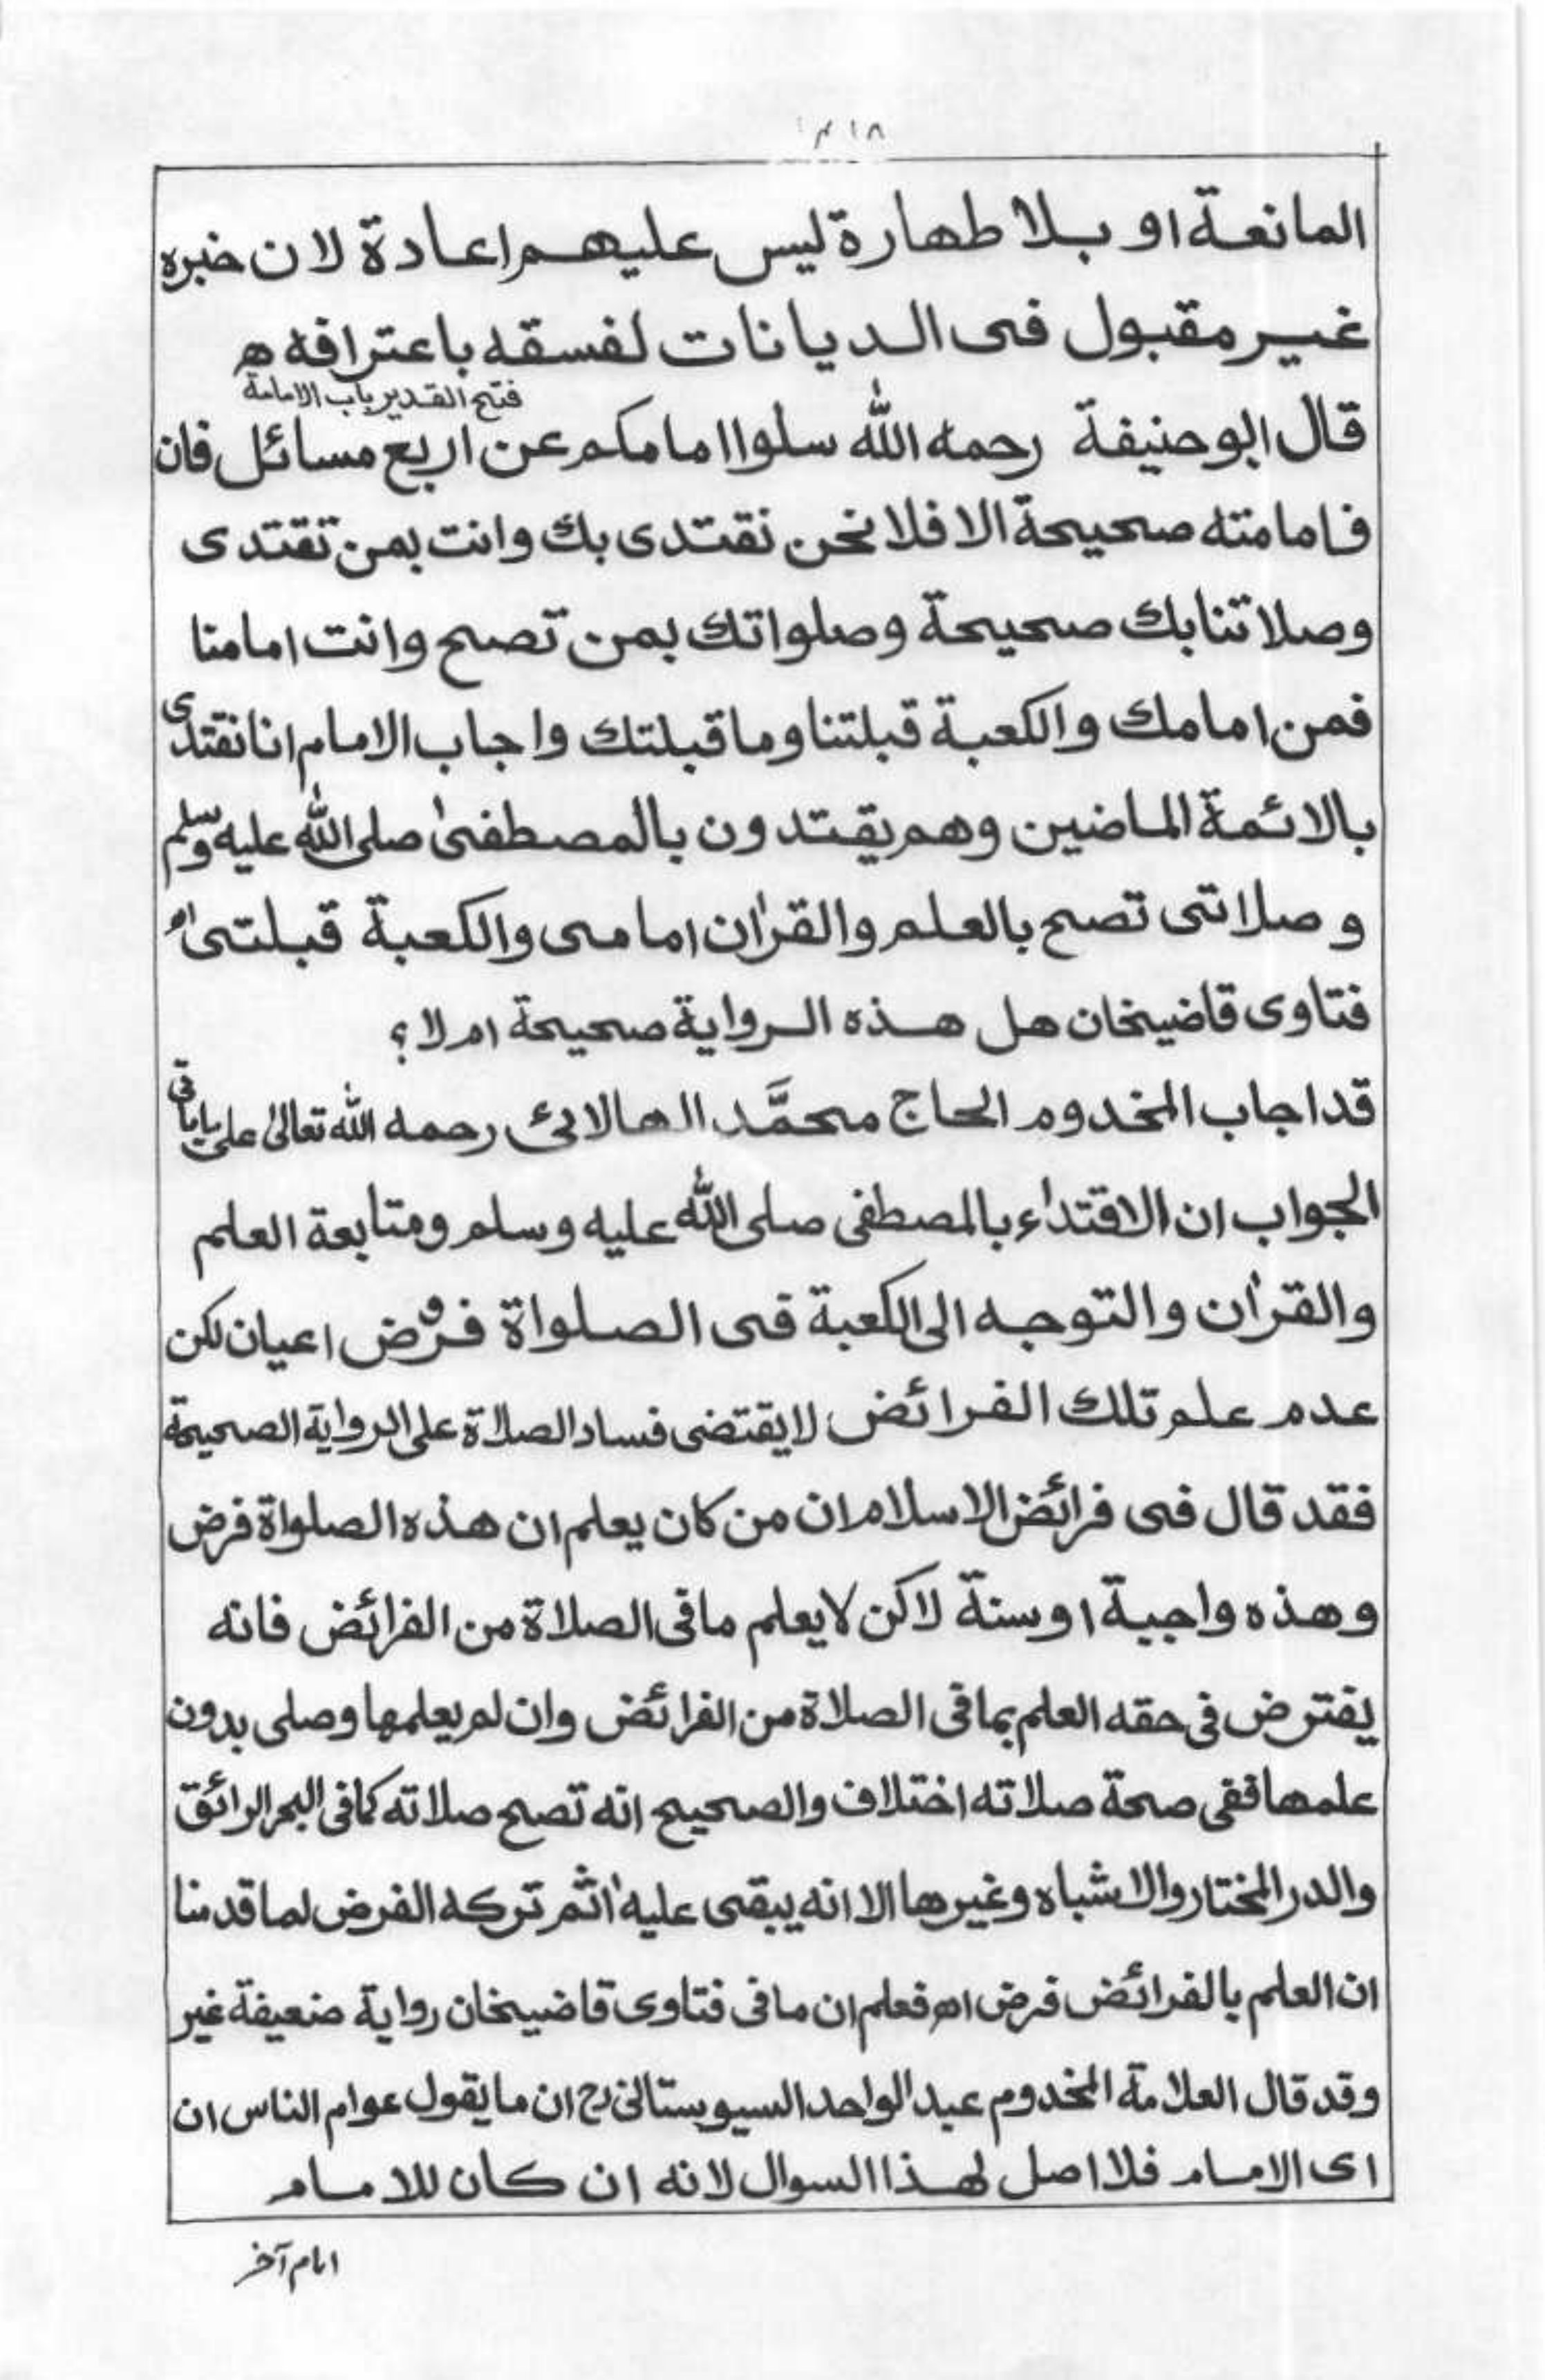 المانعة او بلا طهارة ليس عليهم اعادة لان خبره
غير مقبول فى الديانات لفسقه باعترافه ه
فتح القدير باب الامامة
قال ابو حنيفة رحمه الله سلوا امامكم عن اربع مسائل فان
فامامته صحيحة الا فلا نحن نقتدى بك وانت بمن تقتدى
وصلاتنا بك صحيحة وصلواتك بمن تصح وانت امامنا
فمن امامك والكعبة قبلتنا وما قبلتك واجاب الامام انا نقتدى
بالائمة الماضين وهم يقتدون بالمصطفىٰ صلى الله عليه وسلم
وصلاتى تصح بالعلم والقرٰان امامى والكعبة قبلتى اه
فتاوى قاضيخان هل هذه الرواية صحيحة ام لا؟
قد اجاب المخدوم الحاج محمَّد الهالائى رحمه الله تعالىٰ على
الجواب ان الاقتداء بالمصطفى صلى الله عليه وسلم ومتابعة العلم
والقرٰان والتوجه الى الكعبة فى الصلواة فروض اعيان لكن
عدم علم تلك الفرائض لا يقتضى فساد الصلاة على الرواية الصحيحة
فقد قال فى فرائض الاسلام ان من كان يعلم ان هذه الصلواة فرض
وهذه واجبة او سنة لاكن لا يعلم ما فى الصلاة من الفرائض فانه
يفترض فى حقه العلم بما فى الصلاة من الفرائض وان لم يعلمها وصلى بدون
علمها ففى صحة صلاته اختلاف والصحيح انه تصح صلاته كما فى البحر الرائق
والدر المختار والاشباه وغيرها الا انه يبقى عليه اثم تركه الفرض لما قدمنا
ان العلم بالفرائض فرض اه فعلم ان ما فى فتاوى قاضيخان رواية ضعيفة غير
وقد قال العلامة المخدوم عبد الواحد السيوستانى رح ان ما يقول عوام الناس ان
اى الامام فلا اصل لهذا السوال لانه ان كان للامام
امام آخر